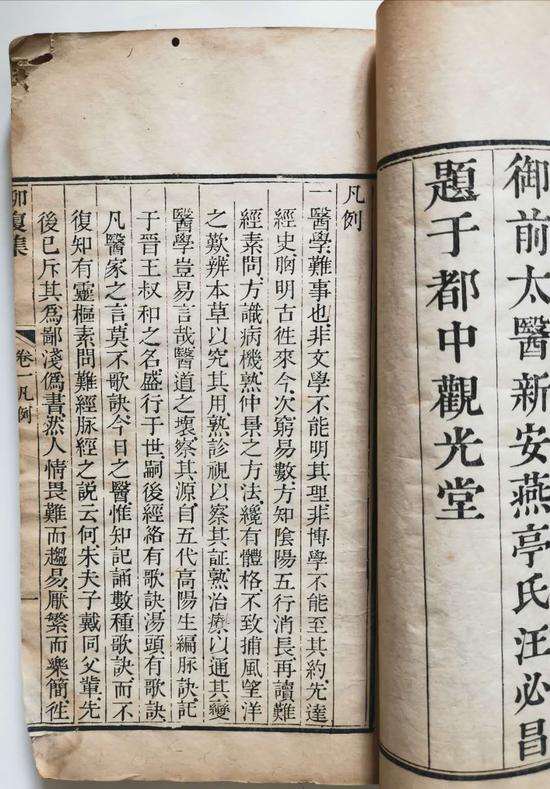 御前太醫新安燕亭氏汪必昌
題于都中觀光堂
凡例
一醫學難事也非文學不能明其理非博學不能至其約先達
經史胸明古徃來今次窮易數方知陰陽五行消長再讀難
經素問方識病機熟仲景之方法纔有體格不致捕風望洋
之歎辨本草以究其用熟診視以察其証熟治療以通其變
醫學豈易言哉醫道之壞察其源自五代高陽生編脉訣記
于晉王叔和之名盛行于世嗣後經絡有歌訣湯頭有歌訣
凡醫家之言莫不歌訣今日之醫惟知記誦數種歌訣而不
復知有靈樞素問難經脉經之說云何宋夫子戴同父輩先
後已斥其爲鄙淺僞書然人情畏難而趨易厭繁而樂簡徃
聊復集 卷一凡例 一